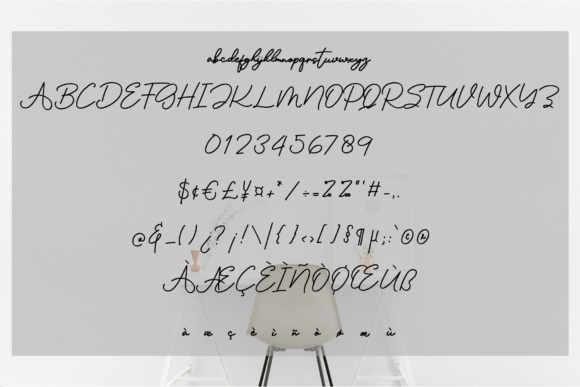 abcdefghijklmnopqrstuvwxyz
ABCDEFGHIJKLMNOPQRSTUVWXYZ
0123456789
$¢€£¥¤+*/÷=
"'#-,.
@&_()¿?¡!\|{}‹›[]§¶µ;:`©®
ÀÆÇÈÌÑÒØŒÙß
à æ ç è ì ñ ò ø œ ù